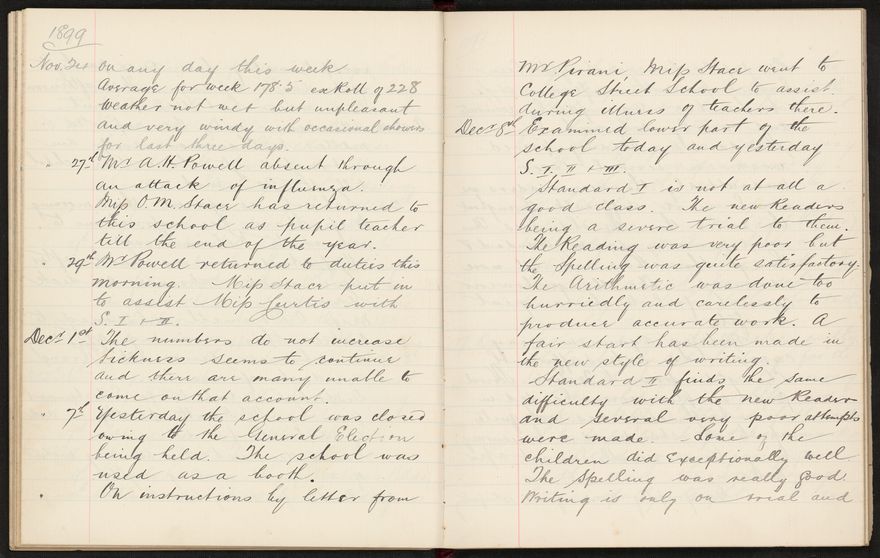 1899
Nov. 24 on any day this week
Average for week 178.5 ex Roll of 228
weather not wet but unpleasant
and very windy with occasional showers
for last three days.
" 27th Mr A. H. Powell absent through
an attack of influenza.
Miss O. M. Stace has returned to
this school as pupil teacher
till the end of the year.
" 29th Mr Powell returned to duties this
morning. Miss Stace put in
to assist Miss Curtis with
S. I + II.
Decr 1st The numbers do not increase
Sickness seems to continue
and there are many unable to
come on that account.
" 7th Yesterday the school was closed
owing to the General Election
being held. The school was
used as a booth.
On instructions by letter from
Mr. Pirani, Miss Stace went to
College Street School to assist
during illness of teachers there.
Decr 8th Examined lower part of the
school today and yesterday
S. I, II + III.
Standard I is not at all a
good class. The new Readers
being a severe trial to them.
The Reading was very poor but
the Spelling was quite satisfactory.
The Arithmetic was done too
hurriedly and carelessly to
produce accurate work. A
fair start has been made in
the new style of writing.
Standard II finds the same
difficulty with the new Reader
and several very poor attempts
were made. Some of the
children did exceptionally well
The Spelling was really good.
Writing is only on trial and